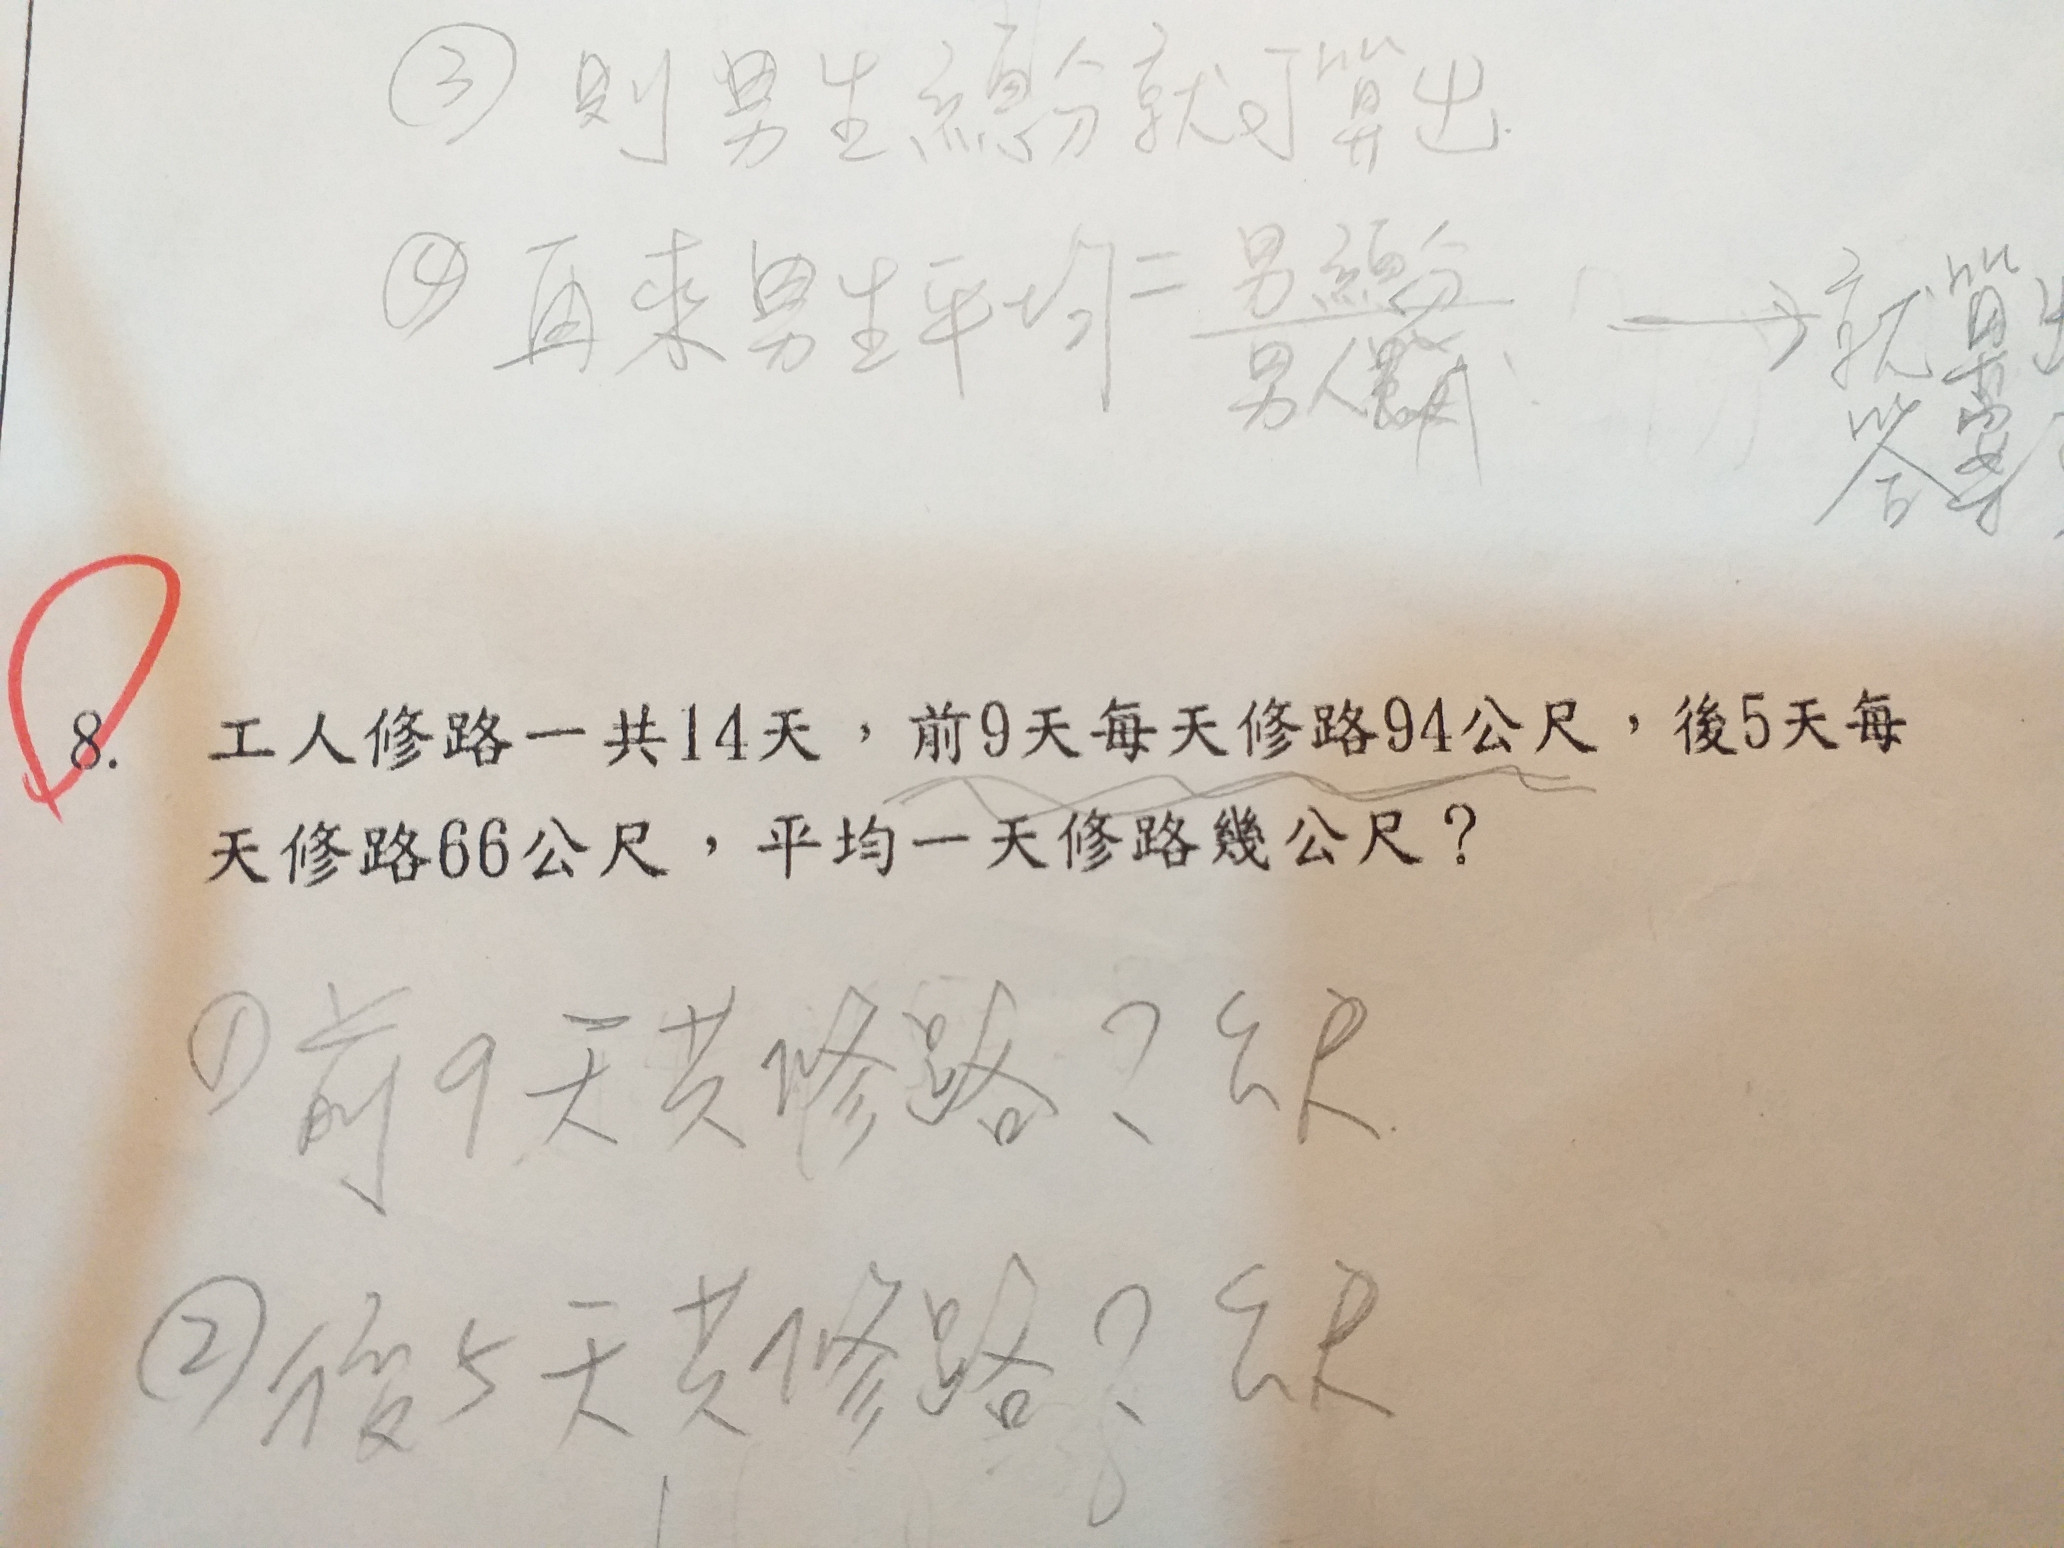 ③ 則男生總分就可算出
④ 再來男生平均=男總分/男人數 → 就算出答案
8. 工人修路一共14天，前9天每天修路94公尺，後5天每
天修路66公尺，平均一天修路幾公尺？
① 前9天共修路？公尺
② 後5天共修路？公尺